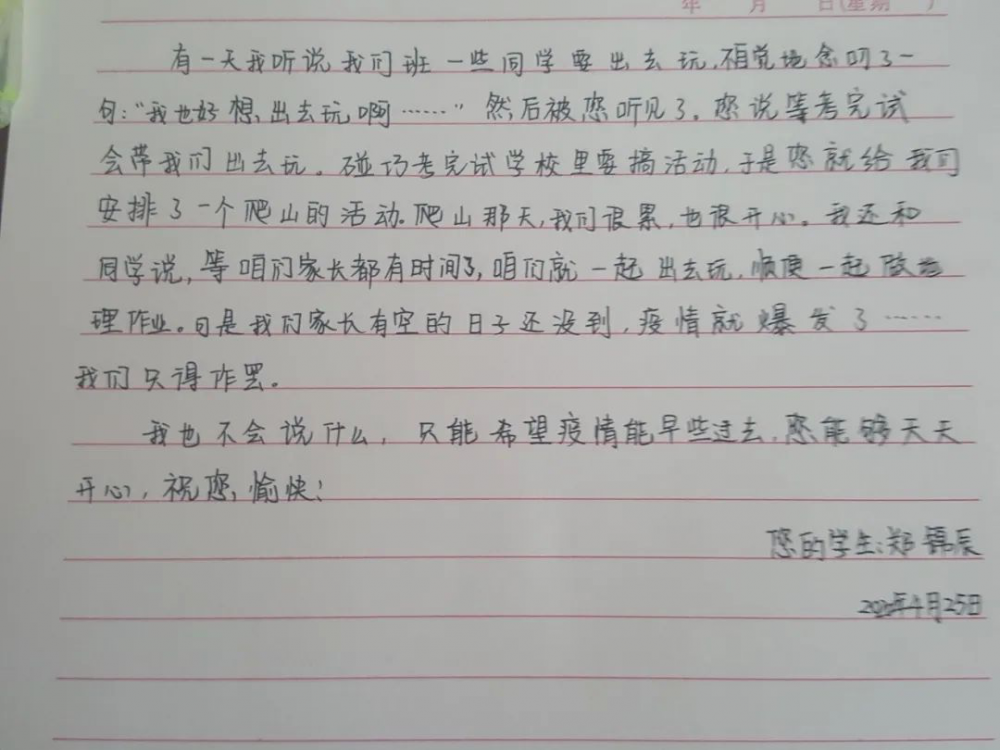 年 月 日(星期 )
有一天我听说我们班一些同学要出去玩,相觉地念叨了一
句:“我也好想出去玩啊……”然后被您听见了。您说等考完试
会带我们出去玩。碰巧考完试学校里要搞活动,于是您就给我们
安排了一个爬山的活动。爬山那天,我们很累,也很开心。我还和
同学说,等咱们家长都有时间了,咱们就一起出去玩,顺便一起做地
理作业。可是我们家长有空的日子还没到,疫情就爆发了……
我们只得作罢。
我也不会说什么,只能希望疫情能早些过去,您能够天天
开心,祝您,愉快!
您的学生:郑锦辰
2020年4月25日